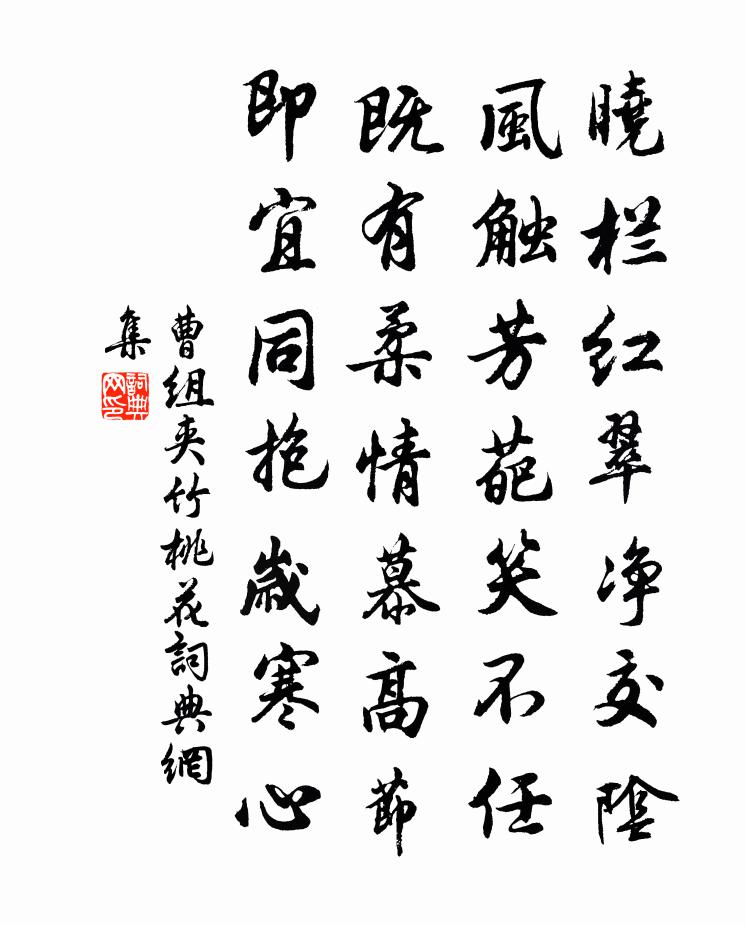 曉栏红翠净交陰
風触芳葩笑不任
既有柔情慕高節
即宜同抱歲寒心
曹组夹竹桃花詞典網
集
詞典网印